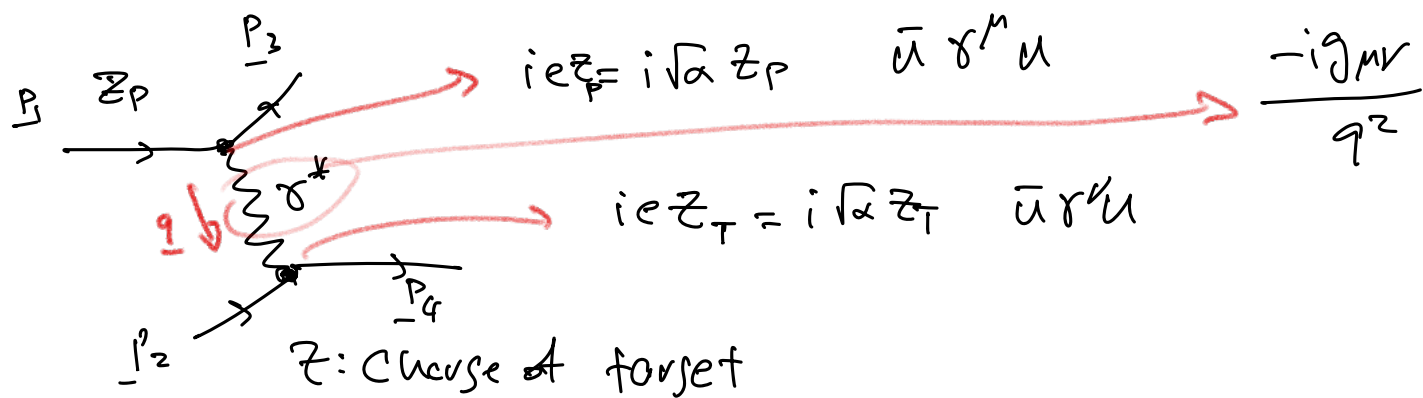 P3
P1 Zp i e Zp = i √α Zp ū γ^μ u -i g_μν / q²
γ*
q i e Z_T = i √α Z_T ū γ^ν u
P4
P2 Z: Charge of target